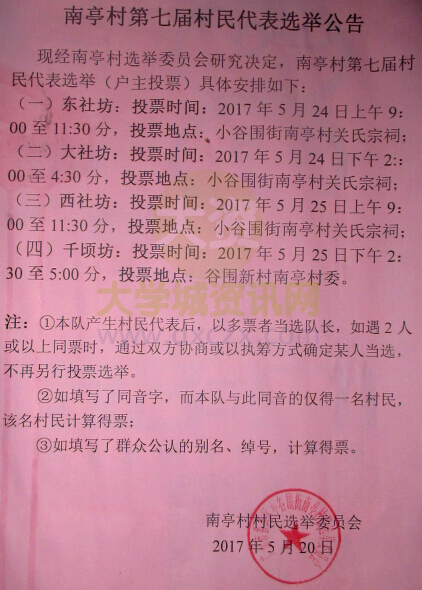 南亭村第七届村民代表选举公告
现经南亭村选举委员会研究决定，南亭村第七届村
民代表选举（户主投票）具体安排如下：
（一）东社坊：投票时间：2017 年 5 月 24 日上午 9：
00 至 11:30 分，投票地点：小谷围街南亭村关氏宗祠；
（二）大社坊：投票时间：2017 年 5 月 24 日下午 2：
00 至 4:30 分，投票地点：小谷围街南亭村关氏宗祠；
（三）西社坊：投票时间：2017 年 5 月 25 日上午 9：
00 至 11:30 分，投票地点：小谷围街南亭村关氏宗祠；
（四）千顷坊：投票时间：2017 年 5 月 25 日下午 2：
30 至 5:00 分，投票地点：谷围新村南亭村委。
大学城资讯网
注：①本队产生村民代表后，以多票者当选队长，如遇 2 人
或以上同票时，通过双方协商或以执筹方式确定某人当选，
不再另行投票选举。
②如填写了同音字，而本队与此同音的仅得一名村民，
该名村民计算得票；
③如填写了群众公认的别名、绰号，计算得票。
南亭村村民选举委员会
2017 年 5 月 20 日